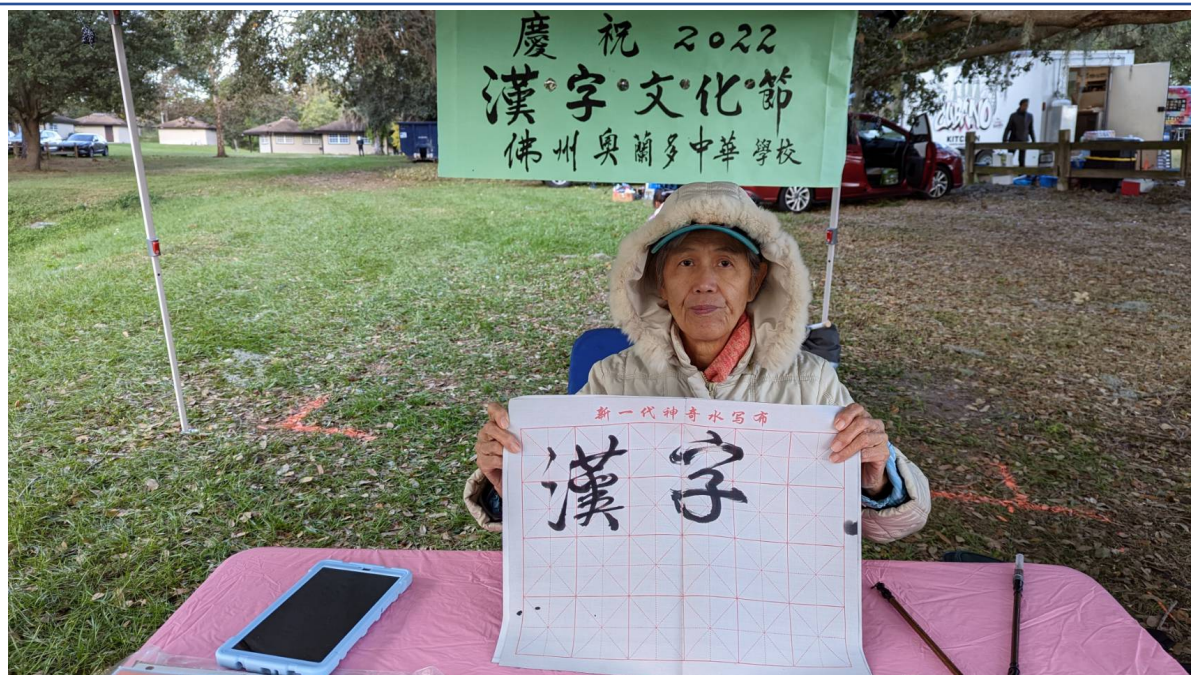 慶祝2022
漢字文化節
佛州奧蘭多中華學校
新一代神奇水写布
漢字